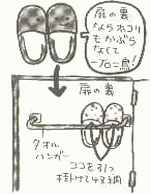 扉の裏
ならホコリ
もかぶら
なくて
一石二鳥!
扉の裏
タオル
ハンガー
ココを引っ
掛けて収納